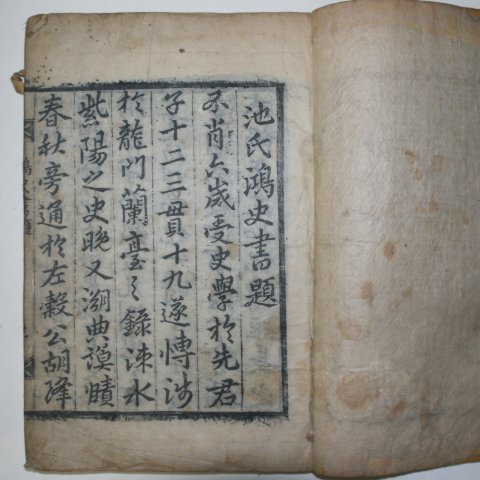 池氏鴻史書題
不肖六歲受史學於先君
子十二三貫十九遂博涉
於龍門蘭臺之錄涑水
紫陽之史晩又溯典謨賾
春秋旁通於左穀公胡降